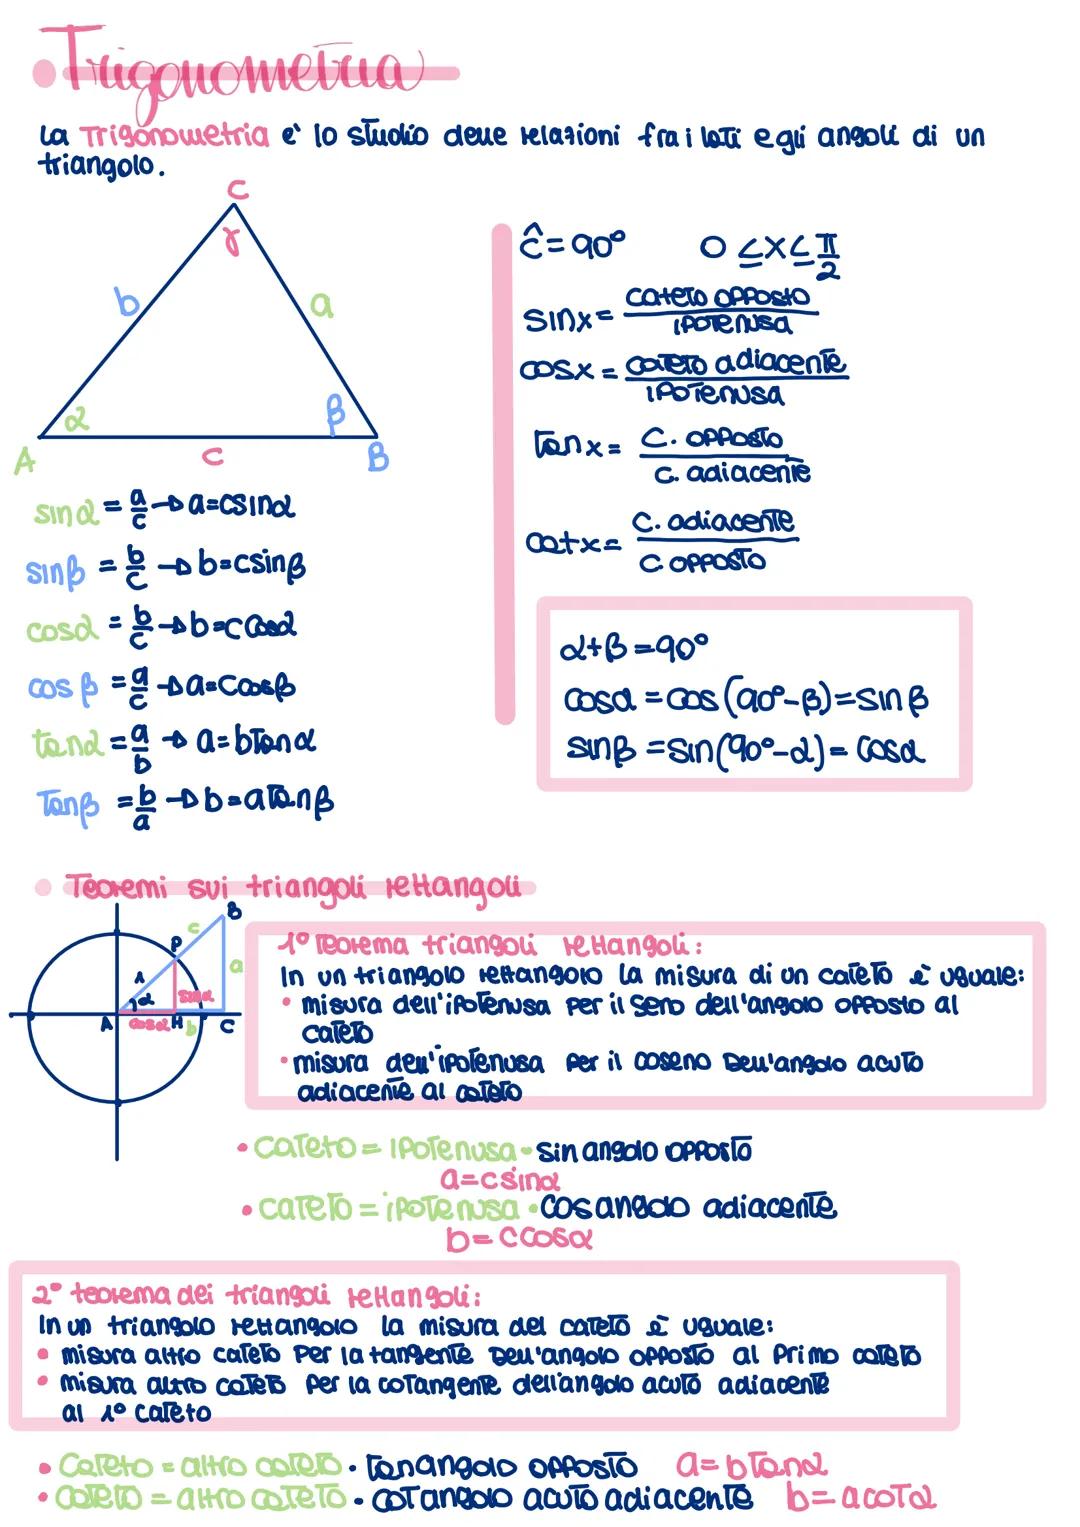 Trigonometria
La Trigonometria e' lo studio delle relazioni fra i lati e gli angoli di un
triangolo.
C
γ
b
a
α
β
A
c
B
sinα = a/c → a=csinα
sinβ = b/c → b=csinβ
cosα = b/c → b=ccosα
cosβ = a/c → a=ccosβ
tanα = a/b → a=btanα
tanβ = b/a → b=atanβ
Ĉ=90° 0≤x≤π/2
sinx= cateto opposto/ipotenusa
cosx= cateto adiacente/ipotenusa
tanx= c. opposto/c. adiacente
cotx= c. adiacente/c opposto
α+β=90°
cosα=cos(90°-β)=sinβ
sinβ=sin(90°-α)=cosα
Teoremi sui triangoli rettangoli
B
c
P
a
1
α
sinα
A
cosα
H
b
C
1° teorema triangoli rettangoli:
In un triangolo rettangolo la misura di un cateto è uguale:
• misura dell'ipotenusa per il seno dell'angolo opposto al
cateto
• misura dell'ipotenusa per il coseno dell'angolo acuto
adiacente al cateto
• cateto = ipotenusa · sin angolo opposto
a=csinα
• cateto = ipotenusa · cos angolo adiacente
b=ccosα
2° teorema dei triangoli rettangoli:
In un triangolo rettangolo la misura del cateto è uguale:
• misura altro cateto per la tangente dell'angolo opposto al primo cateto
• misura altro cateto per la cotangente dell'angolo acuto adiacente
al 1° cateto
• Cateto = altro cateto · tan angolo opposto a=btanα
• cateto = altro cateto · cot angolo acuto adiacente b=acotα